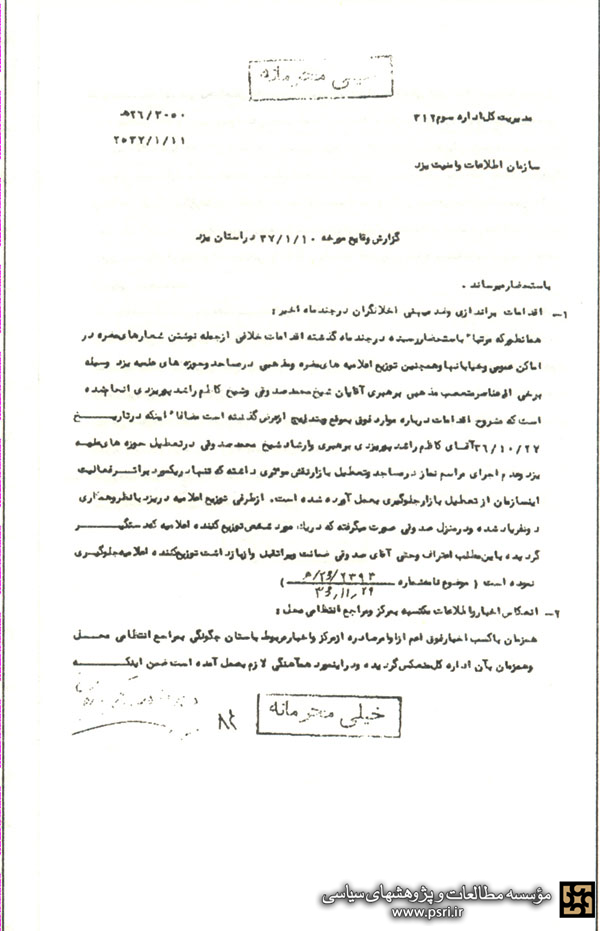 خیلی محرمانه
مدیریت کل اداره سوم ۳۱۲
۲۶/۳۰۵۰ ه
۲۵۳۷/۱/۱۱
سازمان اطلاعات و امنیت یزد
گزارش وقایع مورخه ۳۷/۱/۱۰ در استان یزد
باستحضار میرساند .
۱- اقدامات براندازی و ضد میهنی اخلالگران در چند ماه اخیر :
همانطور که مرتبا" باستحضار رسیده در چند ماه گذشته اقدامات خلافی از جمله نوشتن شعارهای مضره در
اماکن عمومی و خیابانها و همچنین توزیع اعلامیه های مضره و مذهبی در مساجد و حوزه های علمیه یزد وسیله
برخی از عناصر متعصب مذهبی برهبری آقایان شیخ محمد صدوقی و شیخ کاظم راشد پور یزدی انجام شده
است که مشروح اقدامات درباره موارد فوق بموقع و بتدریج از عرض گذشته است مضافا" اینکه در تاریخ
۳۶/۱۰/۲۷ آقای کاظم راشد پور یزدی برهبری و ارشاد شیخ محمد صدوقی در تعطیل حوزه های علمیه
یزد و عدم اجرای مراسم نماز در مساجد و تعطیل بازار نقش موثری داشته که تنها در یکمورد بر اثر فعالیت
این سازمان از تعطیل بازار جلوگیری بعمل آورده شده است . از طرفی توزیع اعلامیه در یزد با نظر و همکاری
دو نفر یاد شده و در منزل صدوقی صورت میگرفته که در یک مورد شخص توزیع کننده اعلامیه که دستگیر
گردیده باین مطلب اعتراف و حتی آقای صدوقی ضمانت و یرا تقبل و از بازداشت توزیع کننده اعلامیه جلوگیری
نموده است ( موضوع نامه شماره ۲۶/۲۳۹۳/ه )
۳۶,۱۱,۲۹
۲- انعکاس اخبار و اطلاعات مکتسبه بمرکز و مراجع انتظامی محل :
همزمان با کسب اخبار فوق اعم از اوامر صادره از مرکز و اخبار مربوط باستان چگونگی بمراجع انتظامی محل
و همزمان بآن اداره کل منعکس گردیده و در اینمورد هماهنگی لازم بعمل آمده است ضمن اینکه
خیلی محرمانه
۸۲
مؤسسه مطالعات و پژوهشهای سیاسی
www.psri.ir